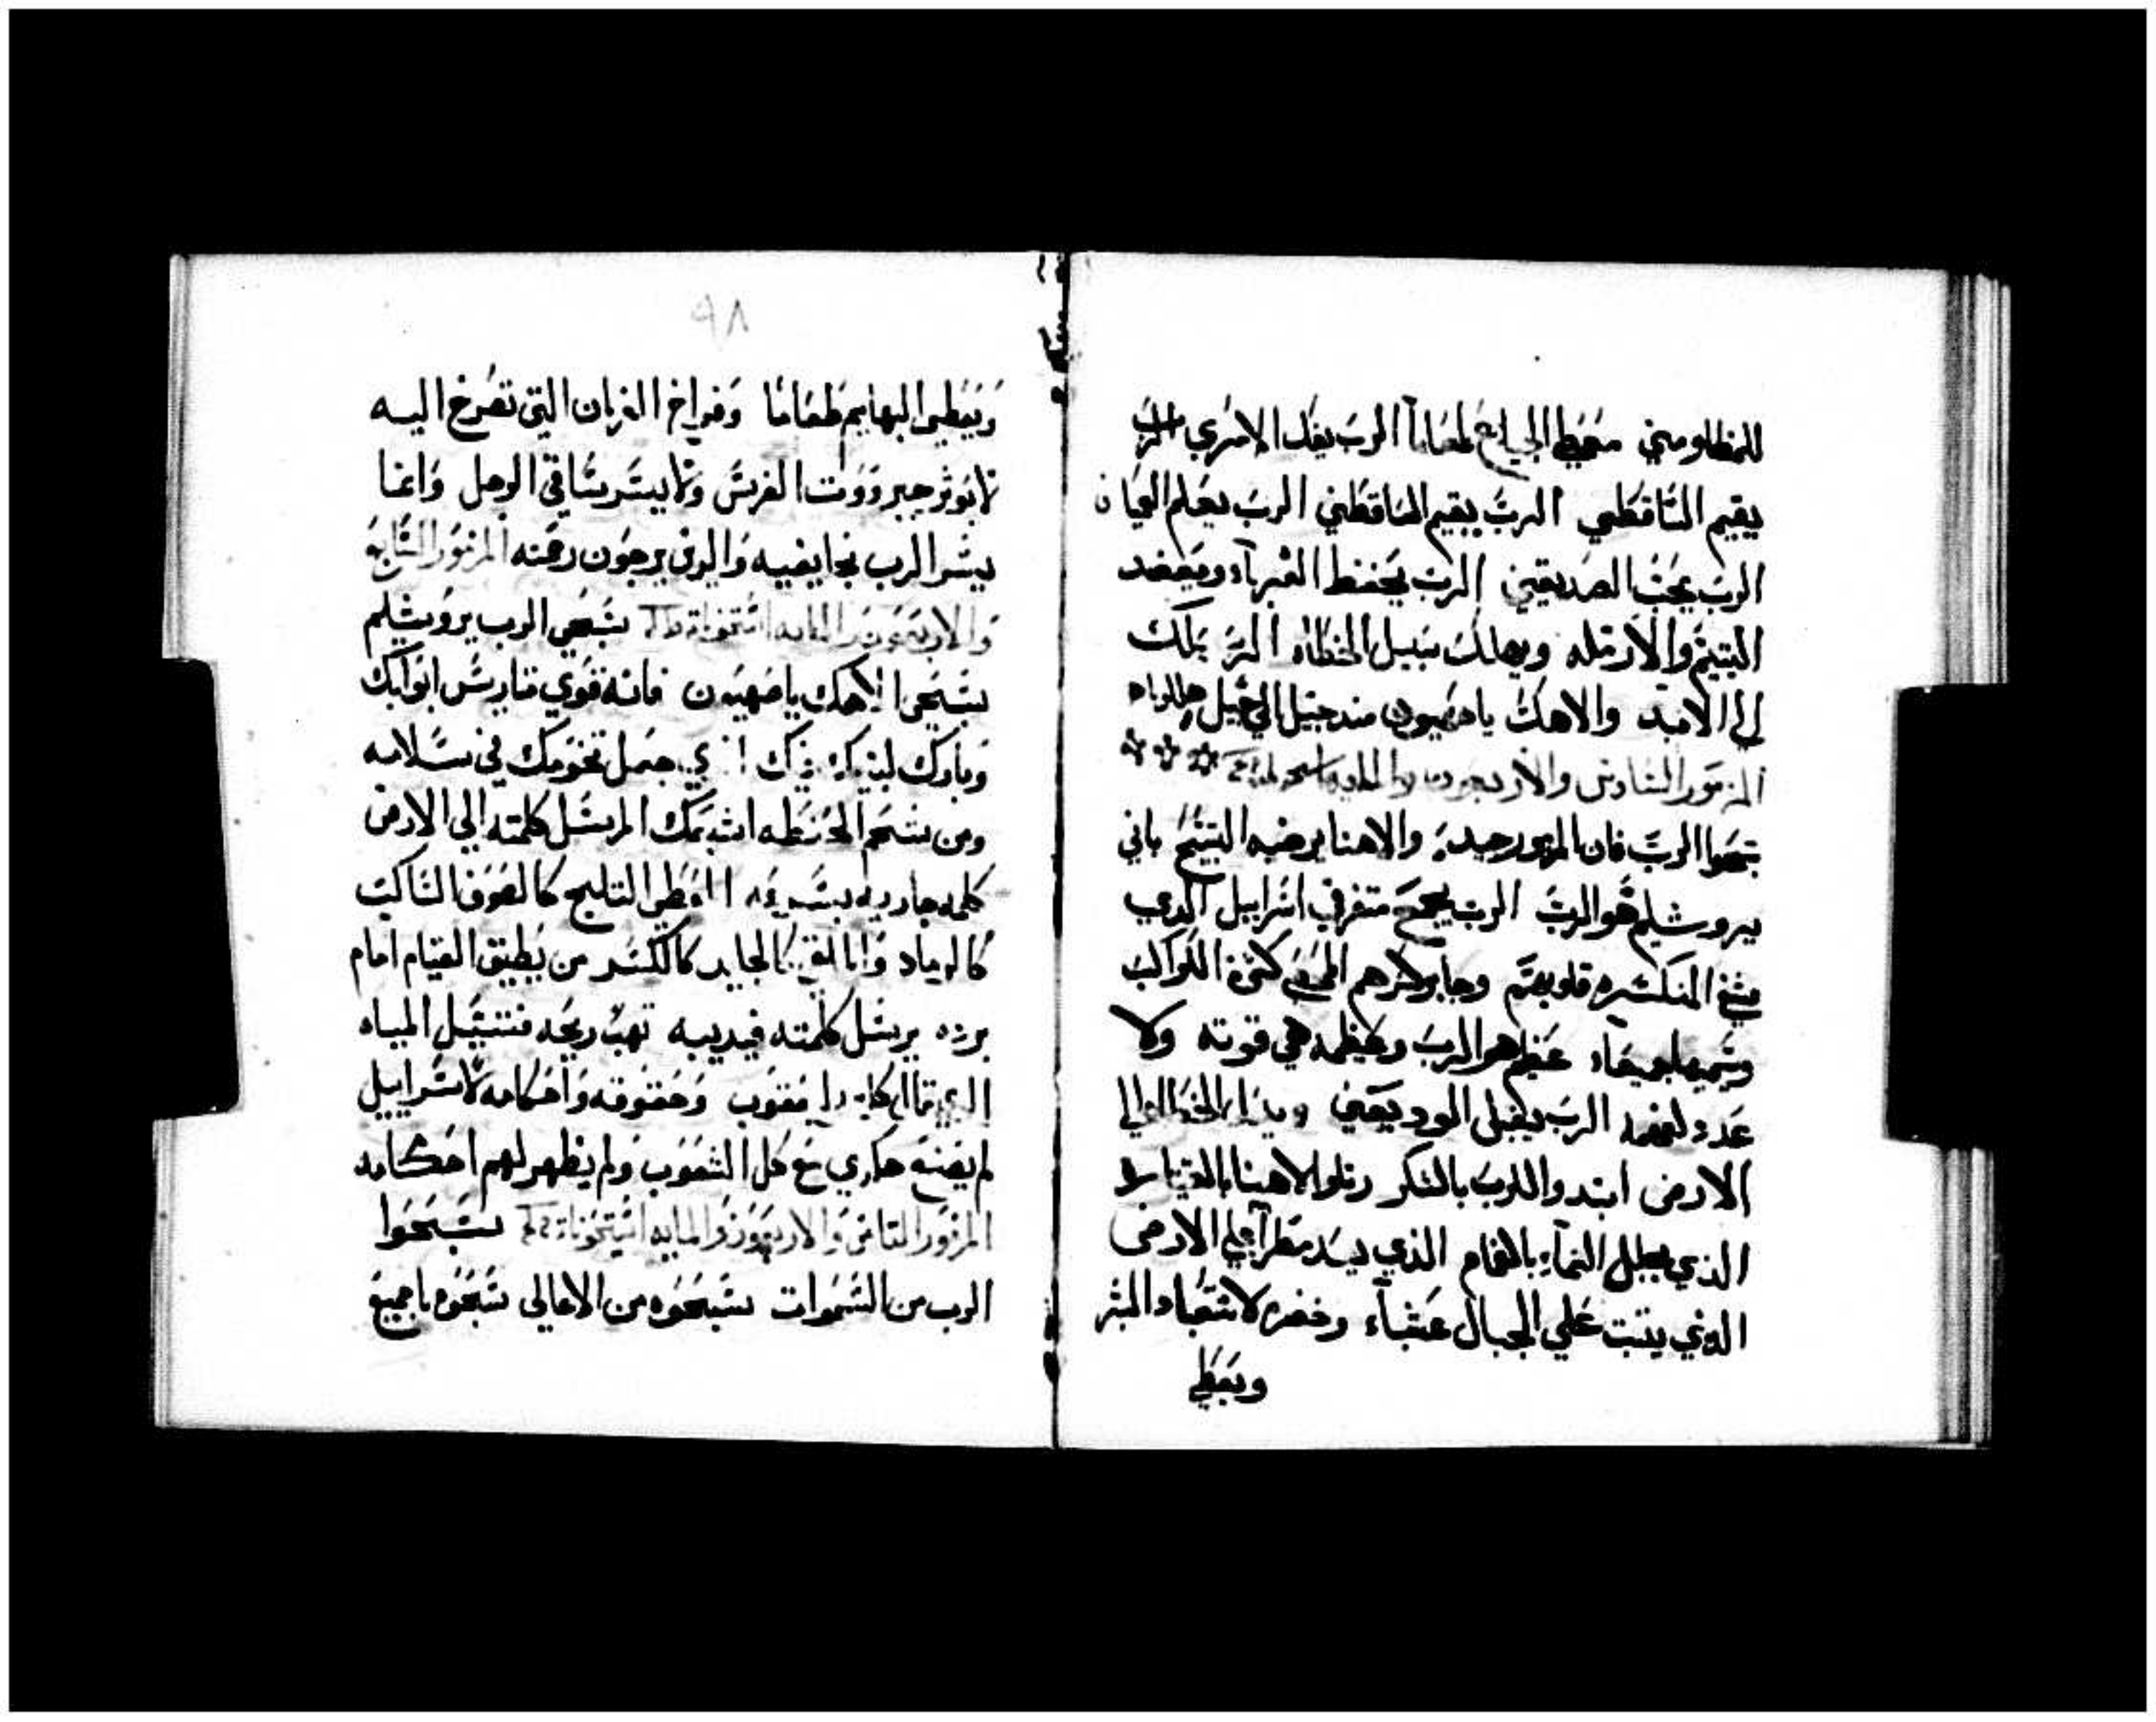 للمظلومين معطي الجياع طعاماً الرب يفك الاسري الرب
يقيم الساقطين الرب يقيم الساقطين الرب يعلم العميان
الرب يحب الصديقين الرب يحفظ الغربآء ويعضد
اليتيم والارمله ويهلك سبيل الخطاه الرب يملك
الي الابد والاهك ياصهيون من جيل الي جيل هللوياه
المزمور السادس والاربعون والمايه
سبحوا الرب فان المزمور جيد والاهنا يرضيه التسبيح باني
يروشليم هو الرب الرب يجمع متفرقي اسراييل الذي
يشفي المنكسره قلوبهم وجابر كسرهم المحصي كثرة الكواكب
ويسميها جميعاء عظيم هو الرب وعظيمه هي قوته ولا
عدد لفهمه الرب يقبل الوديعين ويذل الخطاه الي
الارض ابتدوا للرب بالشكر رتلوا لاهنا بالقيثاره
الذي يجلل السمآء بالغمام الذي يعد مطراً علي الارض
الذي ينبت علي الجبال عشباء وخضره لاستعباد البشر
ويعطي
٩٨
ويعطي البهايم طعاما وفراخ الغربان التي تصرخ اليه
لا يوثر جبروت الفرس ولا يسر بساقي الرجل وانما
يسر الرب بخايفيه والذين يرجون رحمته المزمور السابع
والاربعون والمايه سبحي الرب يروشليم
سبحي الاهك ياصهيون فانه قوي متاريس ابوابك
وبارك بنيك فيك الذي جعل تخومك في سلامه
ومن شحم الحنطه اشبعك المرسل كلمته الي الارض
كلمه جاريه بسرعه المعطي الثلج كالصوف الساكب
كالرماد والقي الجليد كالكسر من يطيق القيام امام
برده يرسل كلمته فيذيبه تهب ريحه فتسيل المياه
الذي قال كلامه ليعقوب وحقوقه واحكامه لاسراييل
لم يصنع هكذي مع كل الشعوب ولم يظهر لهم احكامه
المزمور الثامن والاربعون والمايه سبحوا
الرب من السموات سبحوه من الاعالي سبحوه ياجميع